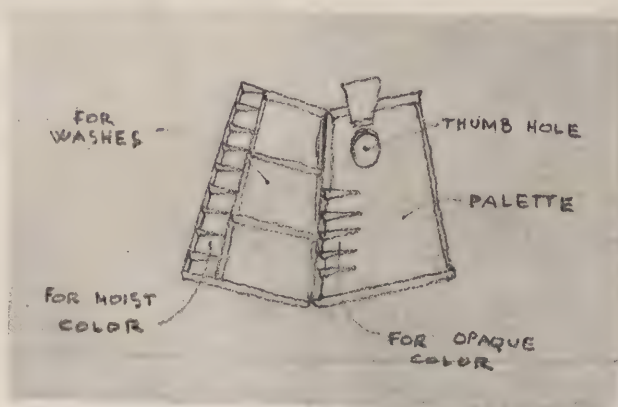 FOR
WASHES
THUMB HOLE
PALETTE
FOR MOIST
COLOR
FOR OPAQUE
COLOR